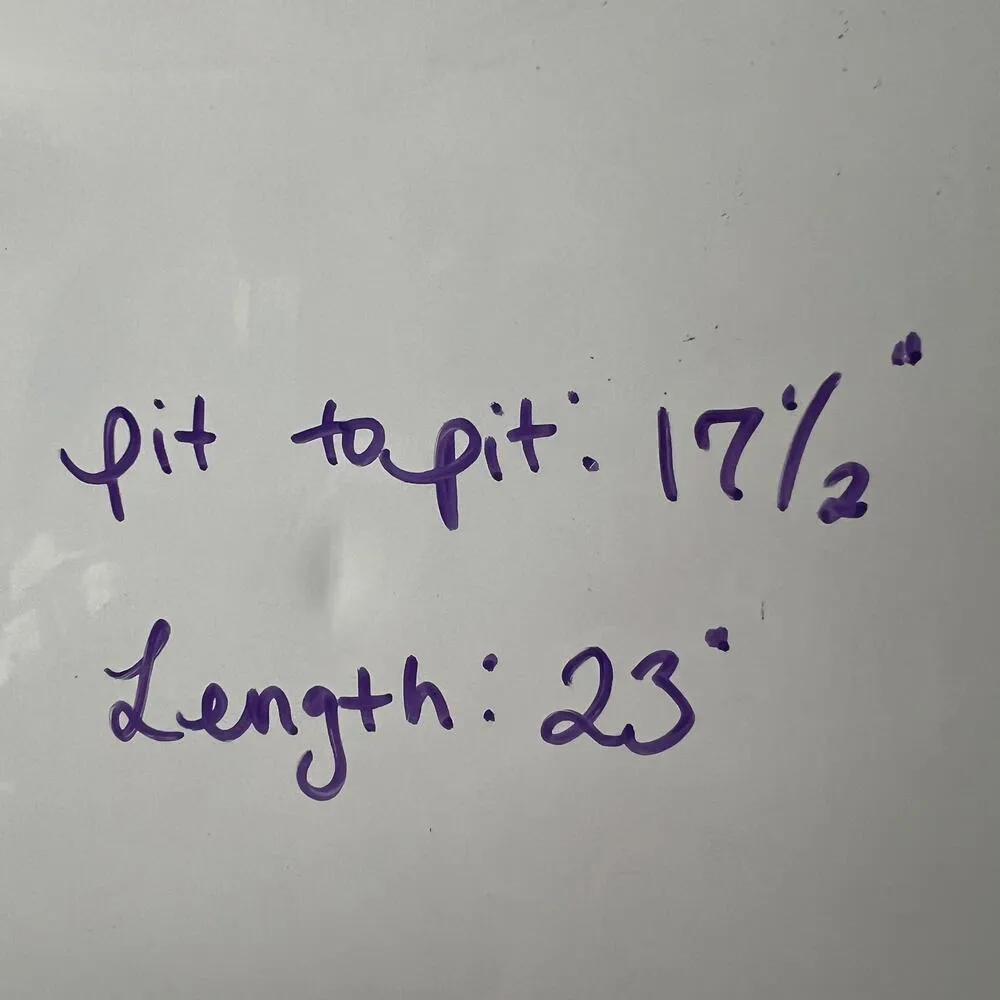 pit to pit: 17 1/2"
Length: 23"